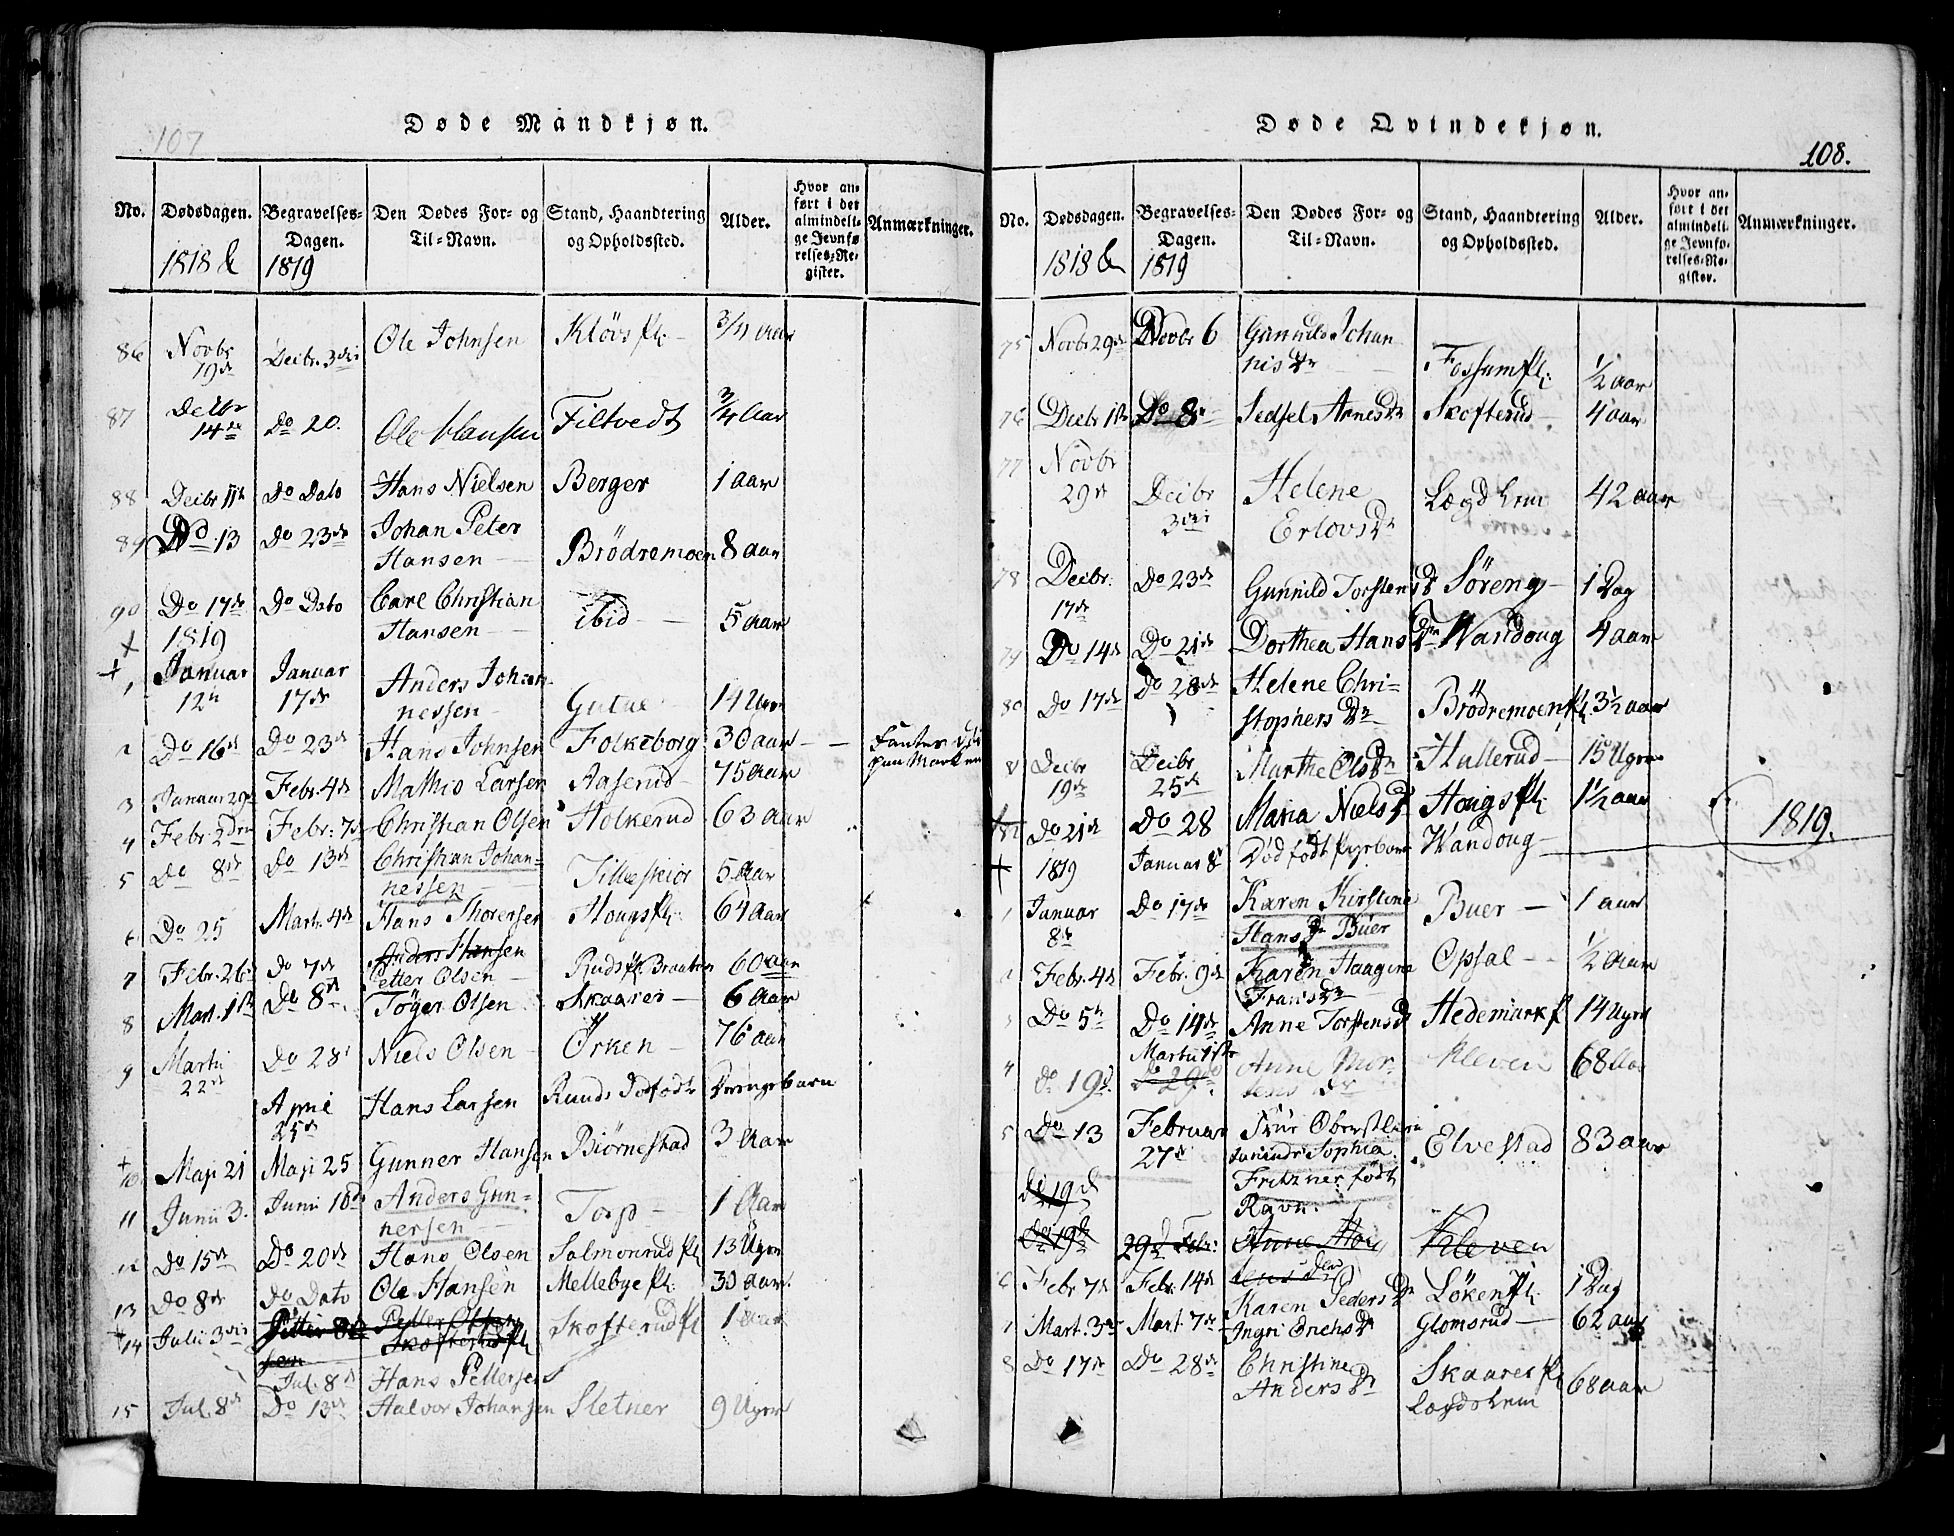 107
Døde Mandkjøn.
No.
Dødsdagen.
1818 &
Begravelses-
Dagen.
1819
Den Dødes For- og
Til-Navn.
Stand, Haandtering
og Opholdssted.
Alder.
Hvor an-
ført i det
almindeli-
ge Jevnfø-
relses-Re-
gister.
Anmærkninger.
86 Novbr 19de Decbr. 3die Ole Johnsen Kløvs pl. 3/4 Aar
87 Decbr 14de Do 20. Ole Hansen Filtvedt 3/4 Aar
88 Decbr 11te Do Dato Hans Nielsen Berger 1 Aar
89 Do 13 Do 23de Johan Peter
Hansen Brödremoen 8 Aar
90 Do 17de Do Dato Carl Christian
Hansen ibid 5 Aar
1819
1 Januar 12te Januar 17de Anders Johan-
nessen 14 Uger
2 Do 16de Do 23de Hans Johnsen Folkeborg 30 aar
3 Januar 29de Febr. 4de Mathis Larsen Aaserud 75 Aar
4 Febr. 2den Febr. 7de Christian Olsen Holkerud 63 aar
5 Do 8de Do 13de Christian Johan-
nessen Tilleskior 5 Aar
6 Do 25 Mart. 4de Hans Thorersen Hougs pl. 64 Aar
7 Febr. 26 Do 7de Anders Hansen
Petter Olsen Ruds pl Braaten 60 aar
8 Mart. 1ste Do 8de Töger Olsen Skaarer 6 Aar
9 Martii 22de Do 28 Niels Olsen Örken 76 aar
April 25de Hans Larsen Ruuds Dödfödt Drengebarn
10 Maji 21 Maji 25 Gunner Hansen Biörnestad 3 Aar
11 Junii 3. Junii 10de Anders Gun-
nersen Torp 1 Aar
12 Do 15de Do 20de Hans Olsen Salmonrud pl 13 Uger
13 Do 8de Do Dato Ole Hansen Mellebye pl. 30 aar.
14 Julii 3die Petter Olsen
Skofterud pl Skofterud pl 1 Aar
sen
Jul. 8de Hans Pettersen
15 Jul. 8de Do 13de Halvor Johansen Sletner 9 Uger
Døde Qvindekjøn.
108.
No.
Dødsdagen.
1818 &
Begravelses-
Dagen.
1819
Den Dødes For- og
Til-Navn.
Stand, Haandtering
og Opholdssted.
Alder.
Hvor an-
ført i det
almindeli-
ge Jevnfø-
relses-Re-
gister.
Anmærkninger.
75 Novbr 29de Novbr 6 Gunnild Johan
nis Dr Fossum pl. 1/2 aar
76 Decbr 1ste Do 8de Sedsel Arnes Dr Skofterud 4 aar
77 Novbr 29de Decbr 3die Helene
Erlovs Dr Lægdslem 42 aar
78 Decbr. 17de Do 23de Gunnild Torstens Dr Söreng 1 Dag
79 Do 14de Do 21de Dorthea Hans Dr Wandoug 4 aar
80 Do 17de Do 28de Helene Chri-
stophers Dr Brödremoen pl. 3 1/2 aar
81 Decbr 19de Decbr 25de Marthe Ols Dr Hullerud 15 Uger
82 Do 21de Do 28 Maria Niels Dr Hougs pl 1 1/2 aar
1819 Januar 8 Död födt Pigebarn Wandoug 1819.
1 Januar 8de Do 17de Karen Kirstine
Hans Dr Buer Buer 1 aar
2 Febr. 4de Febr. 9de Karen Haagine
Frans Dr Opsal 1/2 Aar
3 Do 5te Do 14de Anne Torstens Dr Hedemark pl 14 Uger
4 Do 19de Martii 1ste
Do 29de Anne Mor-
tens Dr Kleven 68 Aar
5 Do 13 Februar 27de Frue Oberstlieu
tenindr Sophia
Fritzner födt
Ravn. Elvestad 83 aar
Do 19de
Do 19de 29de Febr: Anne Mor
tens Der Kleven
6 Febr 7de Febr. 14de Karen Peders Dr Löken pl. 1 Dag
7 Mart. 3die Mart. 7de Ingri Erichs Dr Glomsrud 62 aar
8 Do 17de Do 28de Christine
Anders Dr Skaarer pl
Lægdslem 68 aar